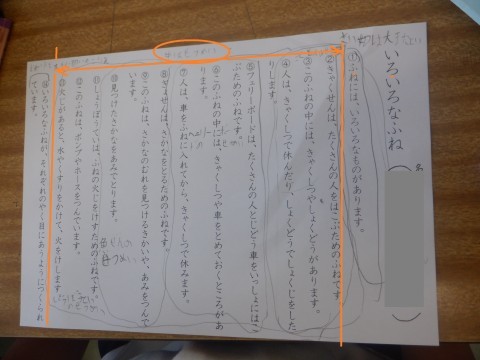 いろいろなふね
名
①ふねには、いろいろなものがあります。
②きゃくせんは、たくさんの人をはこぶためのふねです。
③このふねの中には、きゃくしつやしょくどうがあります。
④人は、きゃくしつで休んだり、しょくどうでしょくじをした
りします。
⑤フェリーボートは、たくさんの人とじどう車をいっしょにはこ
ぶためのふねです。
⑥このふねの中には、きゃくしつや車をとめておくところがあ
ります。
⑦人は、車をふねに入れてから、きゃくしつで休みます。
⑧ぎょせんは、さかなをとるためのふねです。
⑨このふねは、さかなのむれを見つけるきかいや、あみをつんで
います。
⑩見つけたさかなをあみでとります。
⑪しょうぼうていは、ふねの火じをけすためのふねです。
⑫このふねは、ポンプやホースをつんでいます。
⑬火じがあると、水やくすりをかけて、火をけします。
⑭いろいろなふねが、それぞれのやく目にあうようにつくられ
ています。